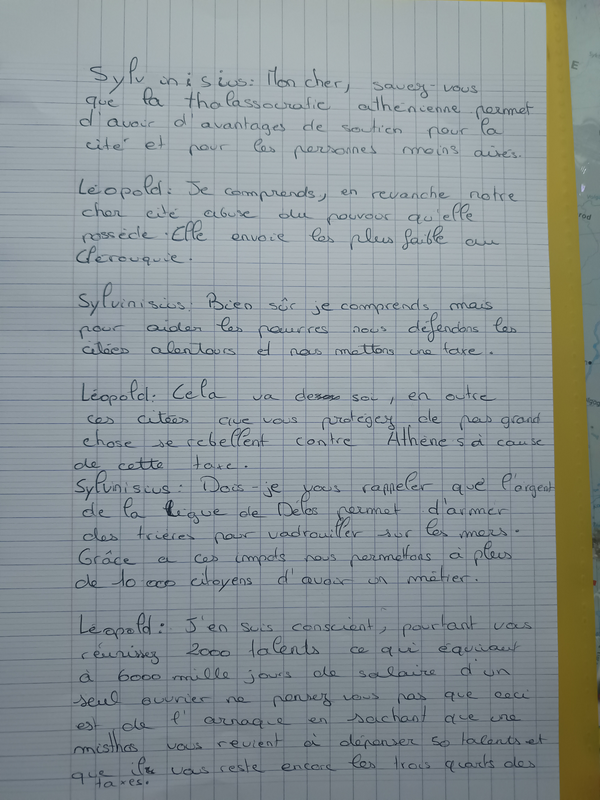 Sylvinisius: Mon cher, savez-vous
que la thalassocratie athénienne permet
d'avoir d'avantages de soutien pour la
cité et pour les personnes moins aisés.
Léopold: Je comprends, en revanche notre
cher cité abuse du pouvoir qu'elle
possède. Elle envoie les plus faible au
Clerouquie.
Sylvinisius: Bien sûr je comprends mais
pour aider les pauvres nous défendons les
citées alentours et nous mettons une taxe.
Léopold: Cela va de soi, en outre
ces citées que vous protégez de pas grand
chose se rebellent contre Athènes à cause
de cette taxe.
Sylvinisius: Dois-je vous rappeler que l'argent
de la ligue de Délos permet d'armer
des trières pour vadrouiller sur les mers.
Grâce a ces impots nous permettons à plus
de 10 000 citoyens d'avoir un métier.
Léopold: J'en suis conscient, pourtant vous
réunissez 2000 talents ce qui équivaut
à 6000 mille jours de salaire d'un
seul ouvrier ne pensez vous pas que ceci
est de l'arnaque en sachant que une
misthos vous revient à dépenser 50 talents et
que il vous reste encore les trois quarts des
taxes.
E